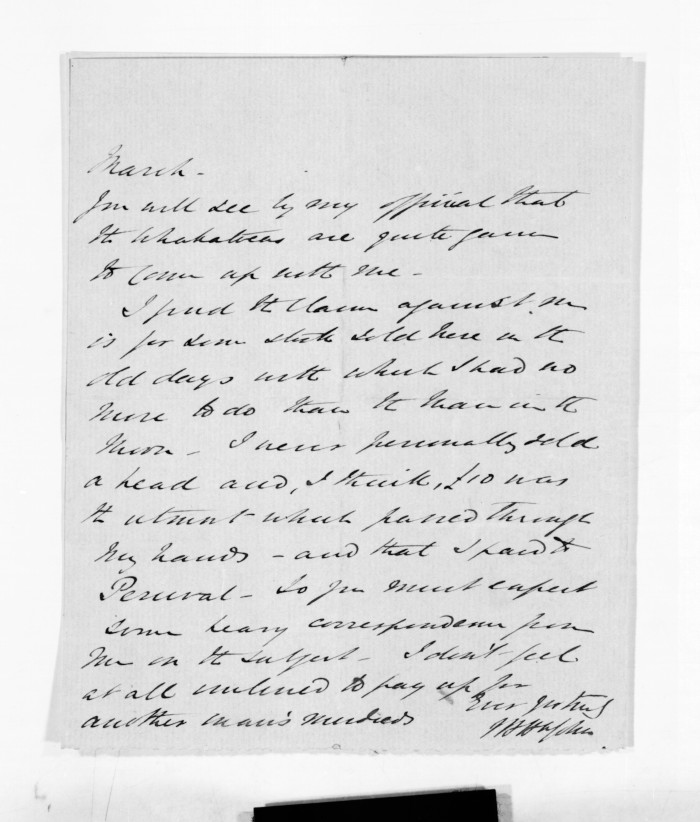 March -
You will see by my official that
the Whakatoheas are quite game
to come up with me -
I find the claim against me
is for some stock sold here in the
old days with which I had no
more to do than the Man in the
Moon - I never personally sold
a head and, I think, £10 was
the utmost which passed through
my hands - and that I paid to
Percival - So you must expect
some heavy correspondence from
me on the subject - I don't feel
at all inclined to pay up for
another man's misdeeds
Ever yrs truly